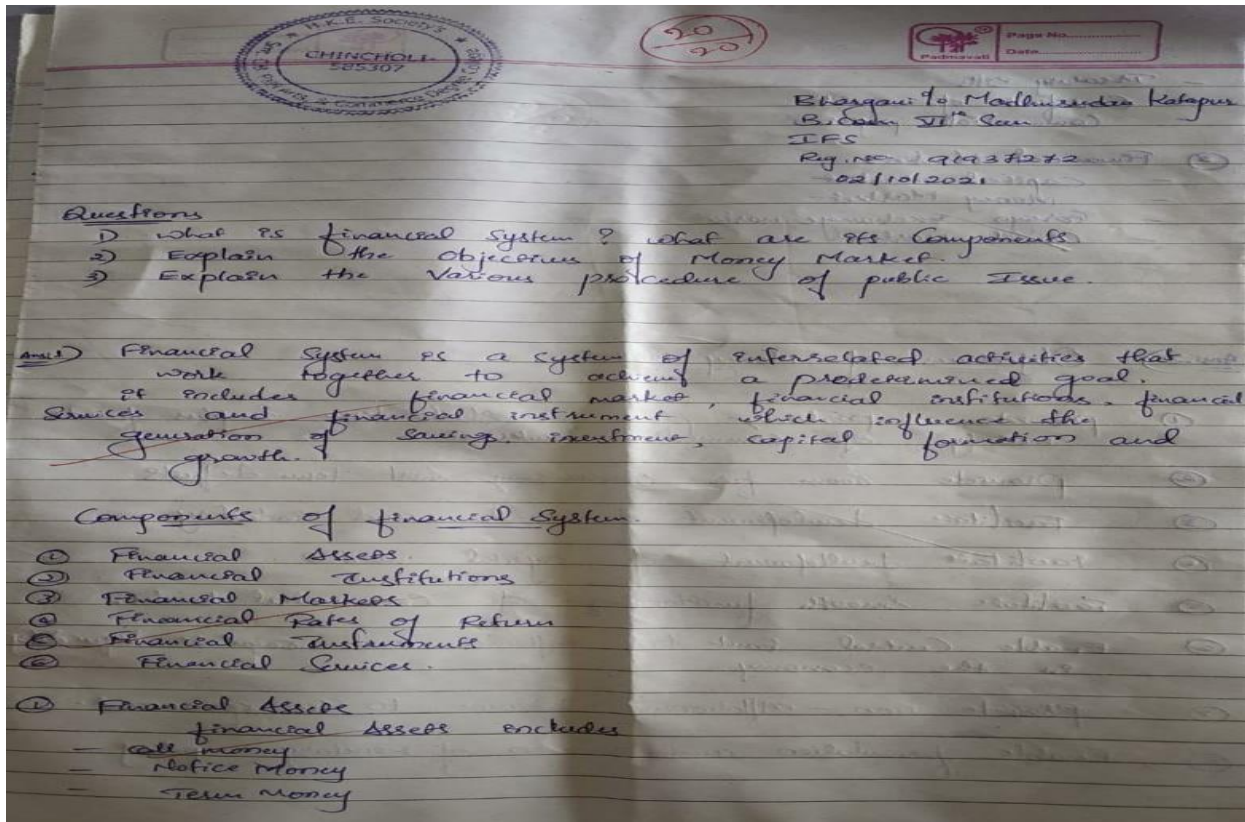 H.K.E. Society's
CHINCHOLI-
585307
& Commerce Degree
20
20
Padmavati
Page No.
Date
Bhargavi D/o Madhusudra Katapur
B.Com VIth Sem
IFS
Reg. no 91937272
02/10/2021
Questions
1) what is financial System? what are its Components
2) Explain the objectives of Money Market.
3) Explain the Various procedure of public Issue.
Ans 1) Financial System is a system of interrelated activities that
work together to achieve a predetermined goal.
it includes financial market, financial institutions, financial
Services and financial instrument which influence the
generation of saving investment, capital formation and
growth.
Components of financial System.
① Financial Assets.
② Financial Institutions
③ Financial Markets
④ Financial Rates of Return
⑤ Financial Instruments
⑥ Financial Services.
① Financial Assets
financial Assets includes
— call money
— Notice Money
— Term Money